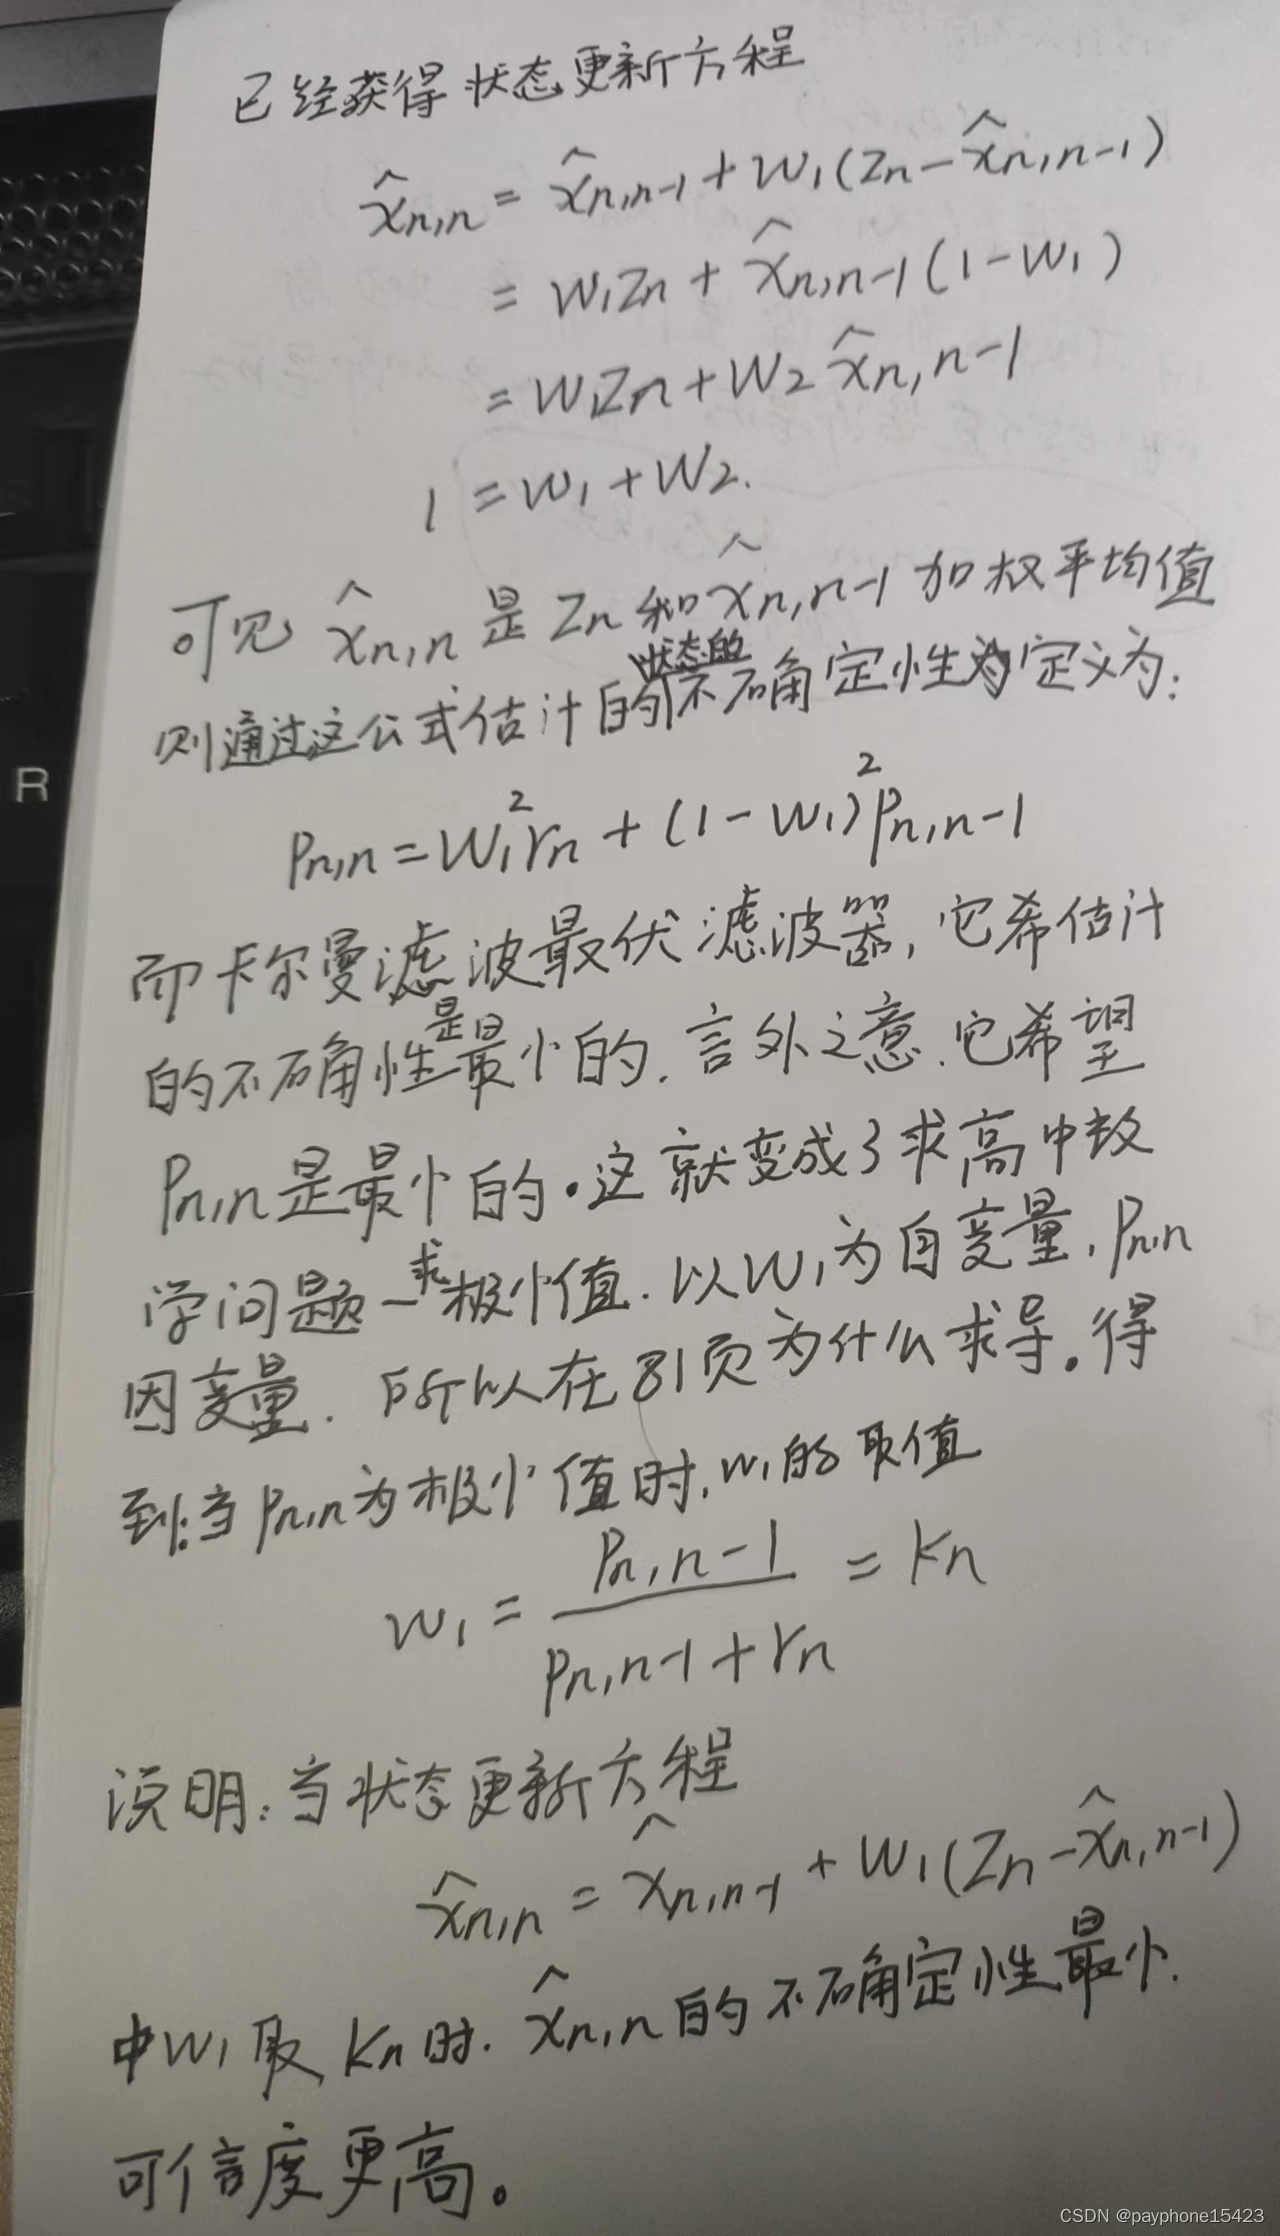 已经获得状态更新方程
x̂n,n = x̂n,n-1 + w1(Zn - x̂n,n-1)
= w1Zn + x̂n,n-1(1-w1)
= w1Zn + w2 x̂n,n-1
1 = w1 + w2.
可见 x̂n,n 是 Zn 和 x̂n,n-1 加权平均值
则通过这公式估计的状态的不确定性为定义为:
Pn,n = w1²rn + (1-w1)²Pn,n-1
而卡尔曼滤波最优滤波器,它希估计
的不确性是最小的.言外之意.它希望
Pn,n是最小的.这就变成了求高中数
学问题—求极小值.以w1为自变量,Pn,n
因变量.所以在81页为什么求导.得
到:当Pn,n为极小值时,w1的取值
w1 = Pn,n-1 / (Pn,n-1 + rn) = Kn
R
说明:当状态更新方程
x̂n,n = x̂n,n-1 + w1(Zn - x̂n,n-1)
中w1取Kn时. x̂n,n的不确定性最小.
可信度更高。
CSDN @payphone15423